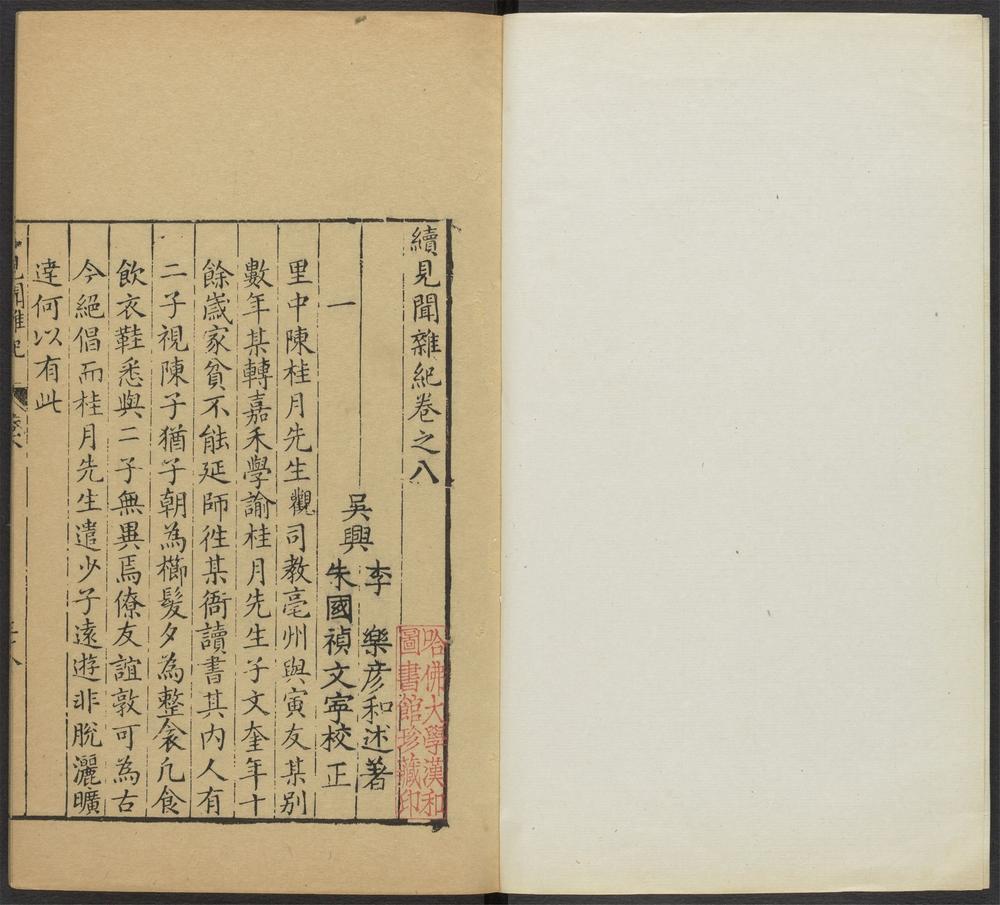 續見聞雜紀卷之八
吳興
李樂彥和述著
朱國禎文寧校正
一
里中陳桂月先生觀司教亳州與寅友某别
數年某轉嘉禾學諭桂月先生子文奎年十
餘歲家貧不能延師徃某衙讀書其内人有
二子視陳子猶子朝為櫛髮夕為整衾凢食
飲衣鞋悉與二子無異焉僚友誼敦可為古
今絕倡而桂月先生遣少子遠遊非脫灑曠
達何以有此
哈佛大學漢和
圖書館珍藏印
見聞雜紀